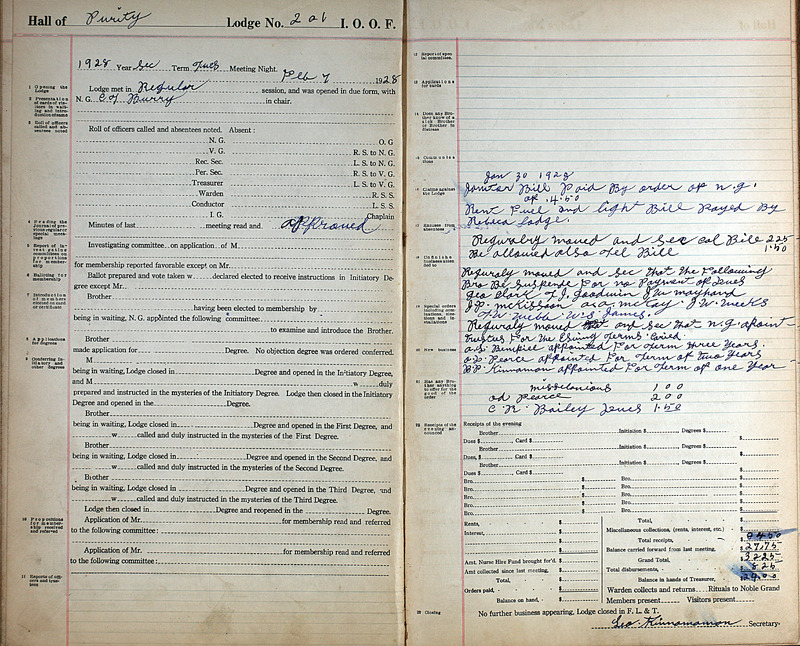 Hall of Purity Lodge No. 201 I. O. O. F.
1928 Year Sec Term Tues Meeting Night. Feb 7 1928
1 Opening the Lodge
Lodge met in Regular session, and was opened in due form, with
N. G. in chair.
Roll of officers called and absentees noted. Absent:
N. G. O. G
V. G. R. S. to N. G.
Rec. Sec. L. S. to N. G.
Per. Sec. R. S. to V. G.
Treasurer L. S. to V. G.
Warden R. S. S.
Conductor L. S. S.
I. G. Chaplain
Minutes of last meeting read and approved
Investigating committee on application of M
for membership reported favorable except on Mr.
Ballot prepared and vote taken w declared elected to receive instructions in Initiatory De-
gree except Mr.
Brother
having been elected to membership by
being in waiting, N. G. appointed the following committee:
to examine and introduce the Brother.
8 Applications for degrees
Brother
made application for Degree. No objection degree was ordered conferred.
9 Conferring Initiatory and other degrees
M
being in waiting, Lodge closed in Degree and opened in the Initiatory Degree,
and M w duly
prepared and instructed in the mysteries of the Initiatory Degree. Lodge then closed in the Initiatory
Degree and opened in the Degree.
Brother
being in waiting, Lodge closed in Degree and opened in the First Degree, and
w called and duly instructed in the mysteries of the First Degree.
Brother
being in waiting, Lodge closed in Degree and opened in the Second Degree, and
w called and duly instructed in the mysteries of the Second Degree.
Brother
being in waiting, Lodge closed in Degree and opened in the Third Degree, and
w called and duly instructed in the mysteries of the Third Degree.
Lodge then closed in Degree and reopened in the Degree.
10 Propositions for membership received and referred
Application of Mr. for membership read and referred
to the following committee:
Application of Mr. for membership read and referred
to the following committee:
11 Reports of officers and trustees
12 Report of special committees.
13 Applications for cards
14 Does any Brother know of a sick Brother or Brother in distress
15 Communications
Jan 30 1928
16 Claims against the Lodge
Janitor Bill Paid By order of n.g.
of 4.50
Rent Fuel and light Bill Payed By
Rebeca Lodge.
Regulalry moved and Sec cal Bill 225
Be allowed also Tel Bill 1.50
18 Unfinished business attended to
Reguraly moved and sec that the Following
Bro Be Suspende For no Payment of Dues
Geo Clark T.J. Goodwin J.W. maynard
J.P. mcKisson J.W. Weeks
T.W. Webb W.S. James.
Reguraly moved and sec that n.g. apoint
Trustus For the
20 New business
appointed For Term three Years.
Pearce appointed For Term of two Years
B.P. Kinnamon appointed For Term of one Year
21 Has any Brother anything to offer for the good of the order
miscelanious 1 00
od Pearce 2 00
C. R. Bailey Dues 1.50
22 Receipts of the evening announced
Receipts of the evening
Brother Initiation $ Degrees $
Dues $ Card $ $
Brother Initiation $ Degrees $
Dues $ Card $ $
Brother Initiation $ Degrees $
Dues $ Card $ $
Bro. $ Bro. $
Bro. $ Bro. $
Bro. $ Bro. $
Bro. $ Bro. $
Rents, $ Total, $
Interest, $ Miscellaneous collections, (rents, interest, etc.) $
Total receipts, $ 04.50
Balance carried forward from last meeting, $ 27.75
Amt. Nurse Hire Fund brought for'd. $ Grand Total, $ 3225
Amt collected since last meeting, $ Total disbursements, $ 825
Total, $ Balance in hands of Treasurer, $ 24.00
Orders paid, $ Warden collects and returns Rituals to Noble Grand
Balance on hand, $ Members present Visitors present
23 Closing
No further business appearing, Lodge closed in F. L. & T.
Geo. Kinnamon Secretary